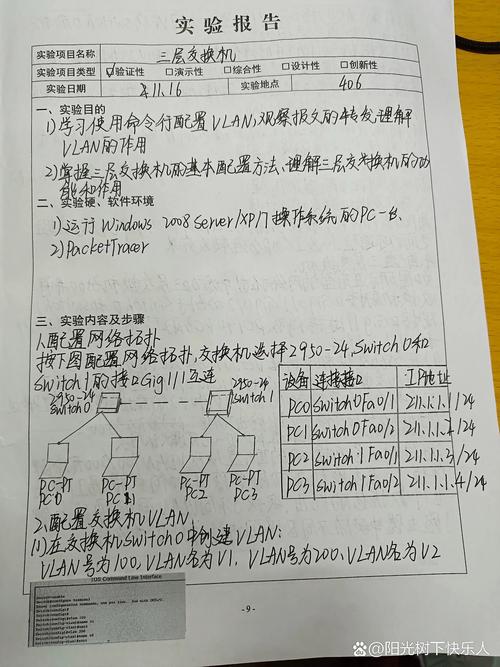 实验报告
实验项目名称 三层交换机
实验项目类型 ☑验证性 □演示性 □综合性 □设计性 □创新性
实验日期 11.16 实验地点 406
一、实验目的
1)学习使用命令行配置VLAN,观察报文的转发,理解
VLAN的作用
2)掌握三层交换机的基本配置方法、理解三层交换机的功
能和作用
二、实验硬、软件环境
1)运行Windows 2008 Server/XP/7操作系统的PC一台.
2)PacketTracer
三、实验内容及步骤
1.配置网络拓扑
按下图配置网络拓扑,交换机选择2950-24,Switch0和
Switch1的接口Gig1/1互连
2950-24
Switch0
2950-24
Switch1
PC-PT
PC0
PC-PT
PC1
PC-PT
PC2
PC-PT
PC3
设备 连接接口 IP地址
PC0 Switch0Fa0/1 211.1.1.1/24
PC1 Switch0Fa0/2 211.1.1.2/24
PC2 Switch1Fa0/1 211.1.1.3/24
PC3 Switch1Fa0/2 211.1.1.4/24
2.配置交换机VLAN
(1)在交换机Switch0中创建VLAN:
VLAN号为100,VLAN名为V1,VLAN号为200,VLAN名为V2
IOS Command Line Interface
- 9 -
头条 @阳光树下快乐人